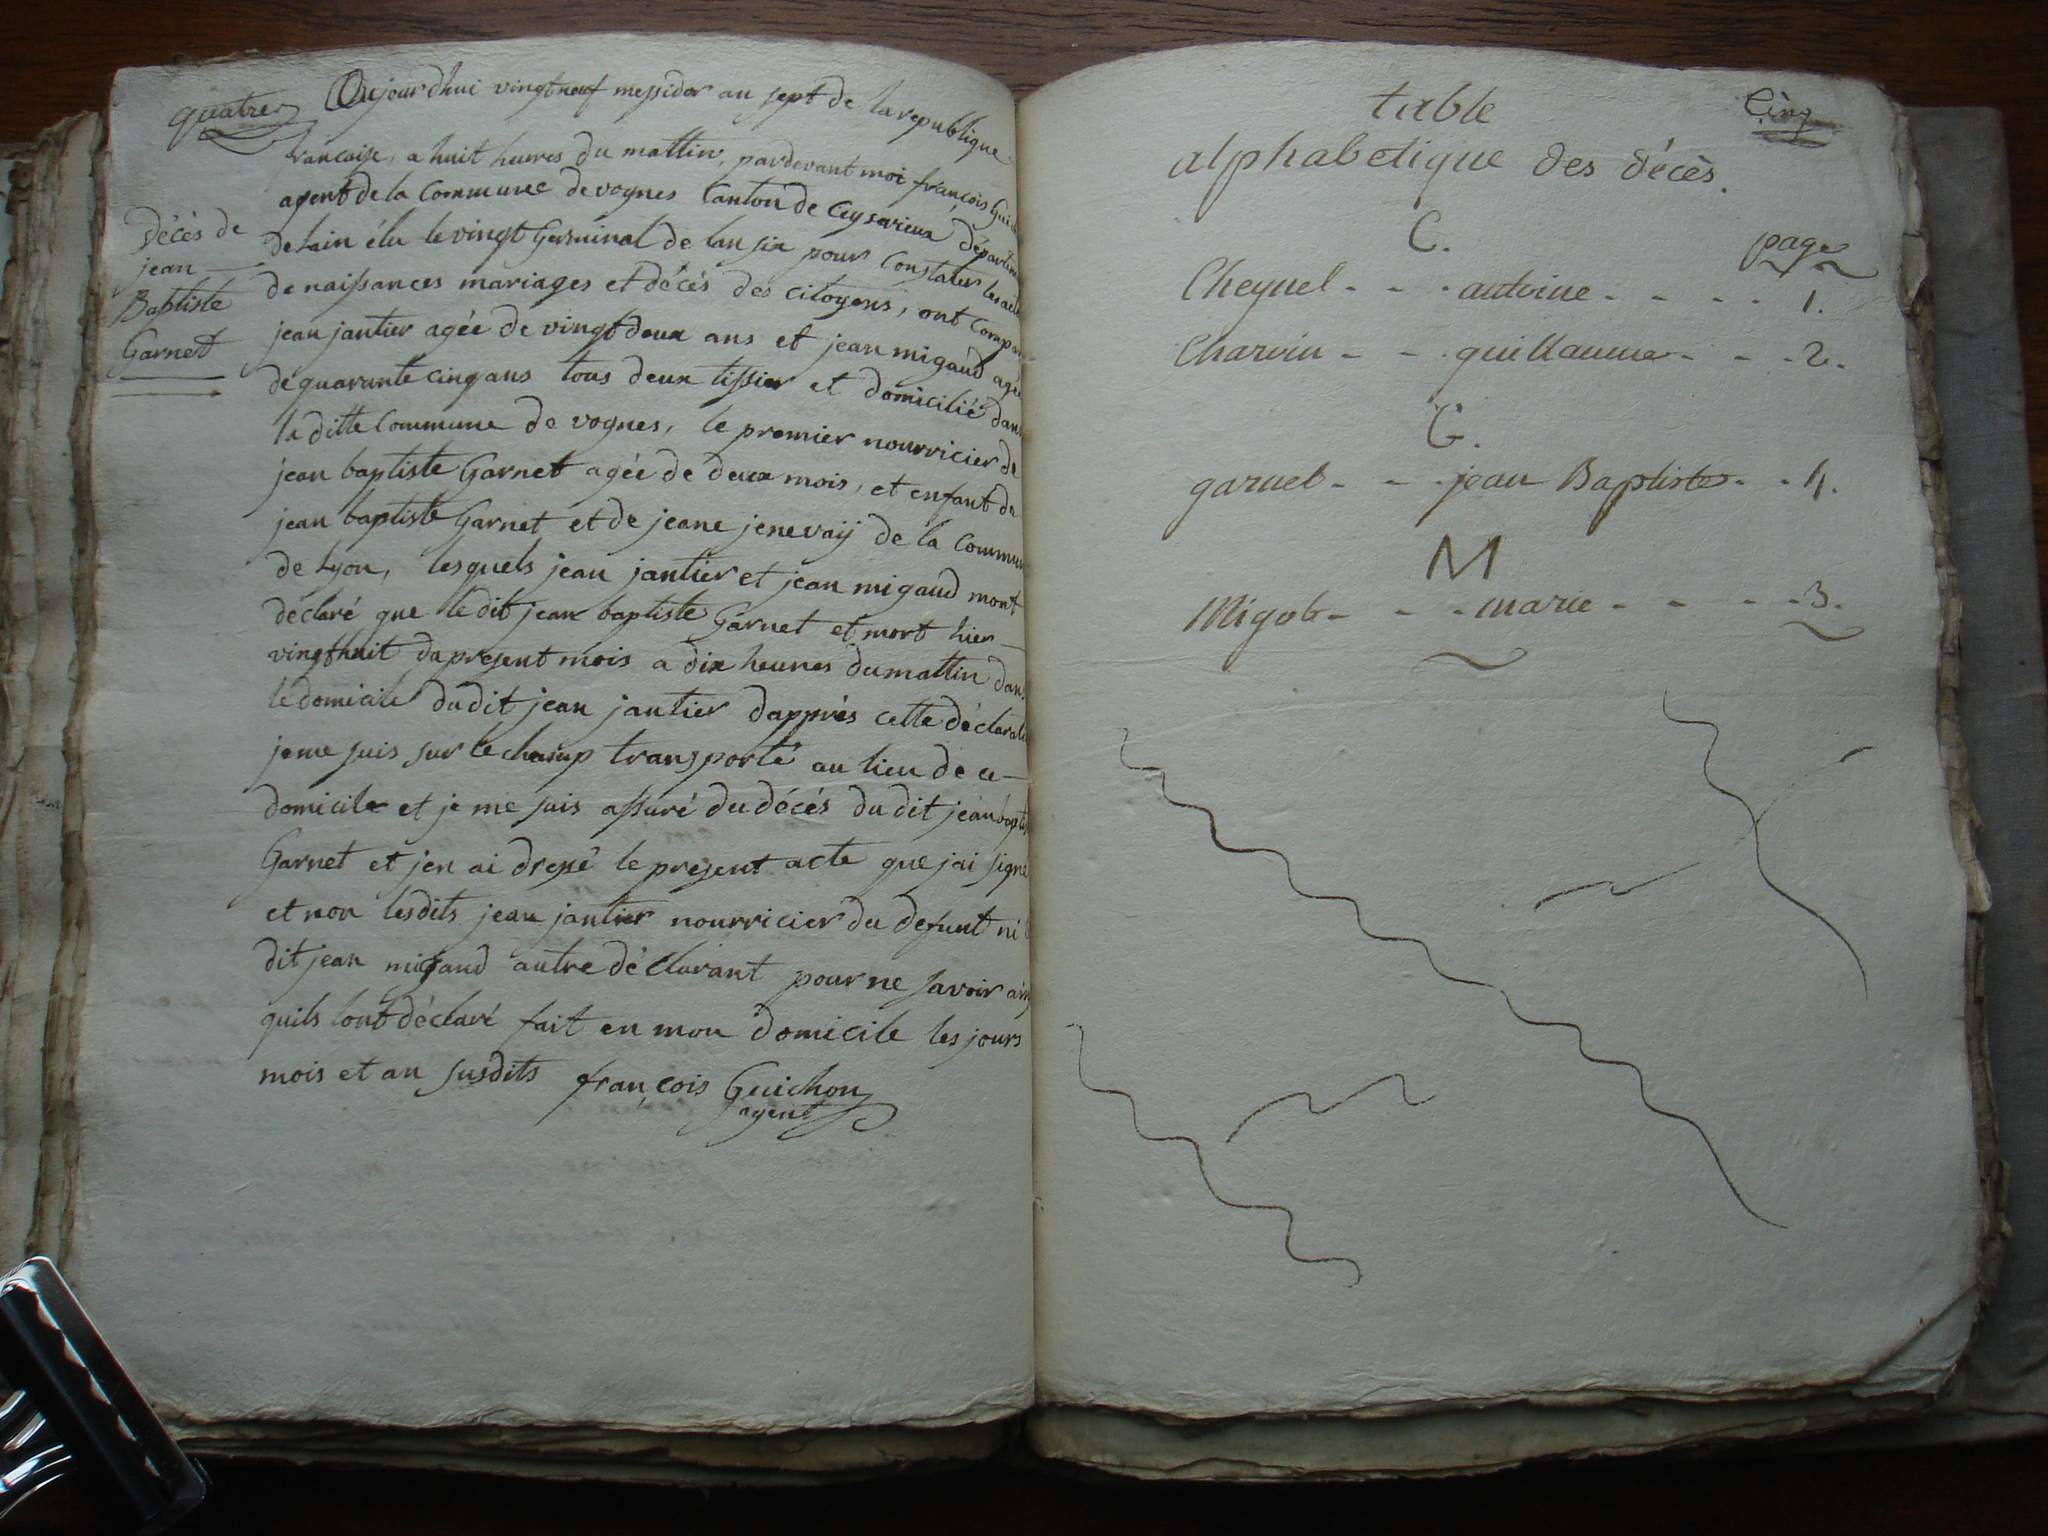 quatre
Aujourdhui vingtneuf messidor an sept de la republique
francaise, a huit heures du mattin, pardevant moi françois
agent de la Commune de vognes Canton de Ceyserieux départem
de lain élu le vingt Germinal de lan six pour Constater les
de naissances mariages et décés des citoyens, ont Compar
jean jantier agée de vingtdeux ans et jean migaud agé
de quarante cinq ans tous deux tissier et domicilié dans
la ditte Commune de vognes, le premier nourricier de
jean baptiste Garnet agée de deux mois, et enfant de
jean baptiste Garnet et de jeane jenevaÿ de la Commun
de Lyon, lesquels jean jantier et jean migaud mont
déclaré que le dit jean baptiste Garnet et mort hier
vingthuit du present mois a dix heures du mattin dans
le domicile du dit jean jantier dapprés cette déclarati
je me suis sur le champ transporté au lieu de ce
domicile et je me suis assuré du décés du dit jean bapti
Garnet et jen ai dressé le present acte que jai signé
et non lesdits jean jantier nourricier du defunt ni l
dit jean migaud autre déclarant pour ne savoir ain
quils lont déclaré fait en mon domicile les jours
mois et an susdits françois Guichon
agent
décés de
jean
Baptiste
Garnet
Cinq
table
alphabetique des décès.
C. page
Cheynel - - - antoine - - - - 1.
Charvin - - - guillaume - - - 2.
G.
garnet - - - jean Baptiste - - 4.
M
Migob - - - - marie - - - - 3.